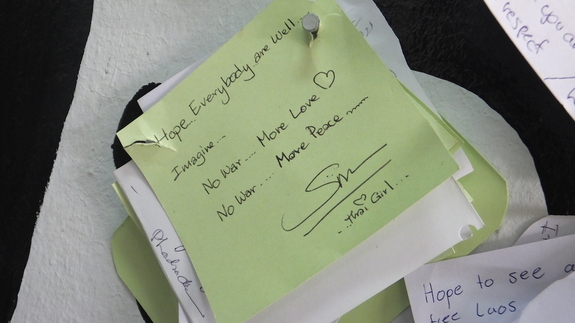 Hope.. Everybody are Well.
Imagine...
No War.... More Love ♡
No War.... More Peace......
...Thai Girl....
you a
respect
Hope to see a
free Laos